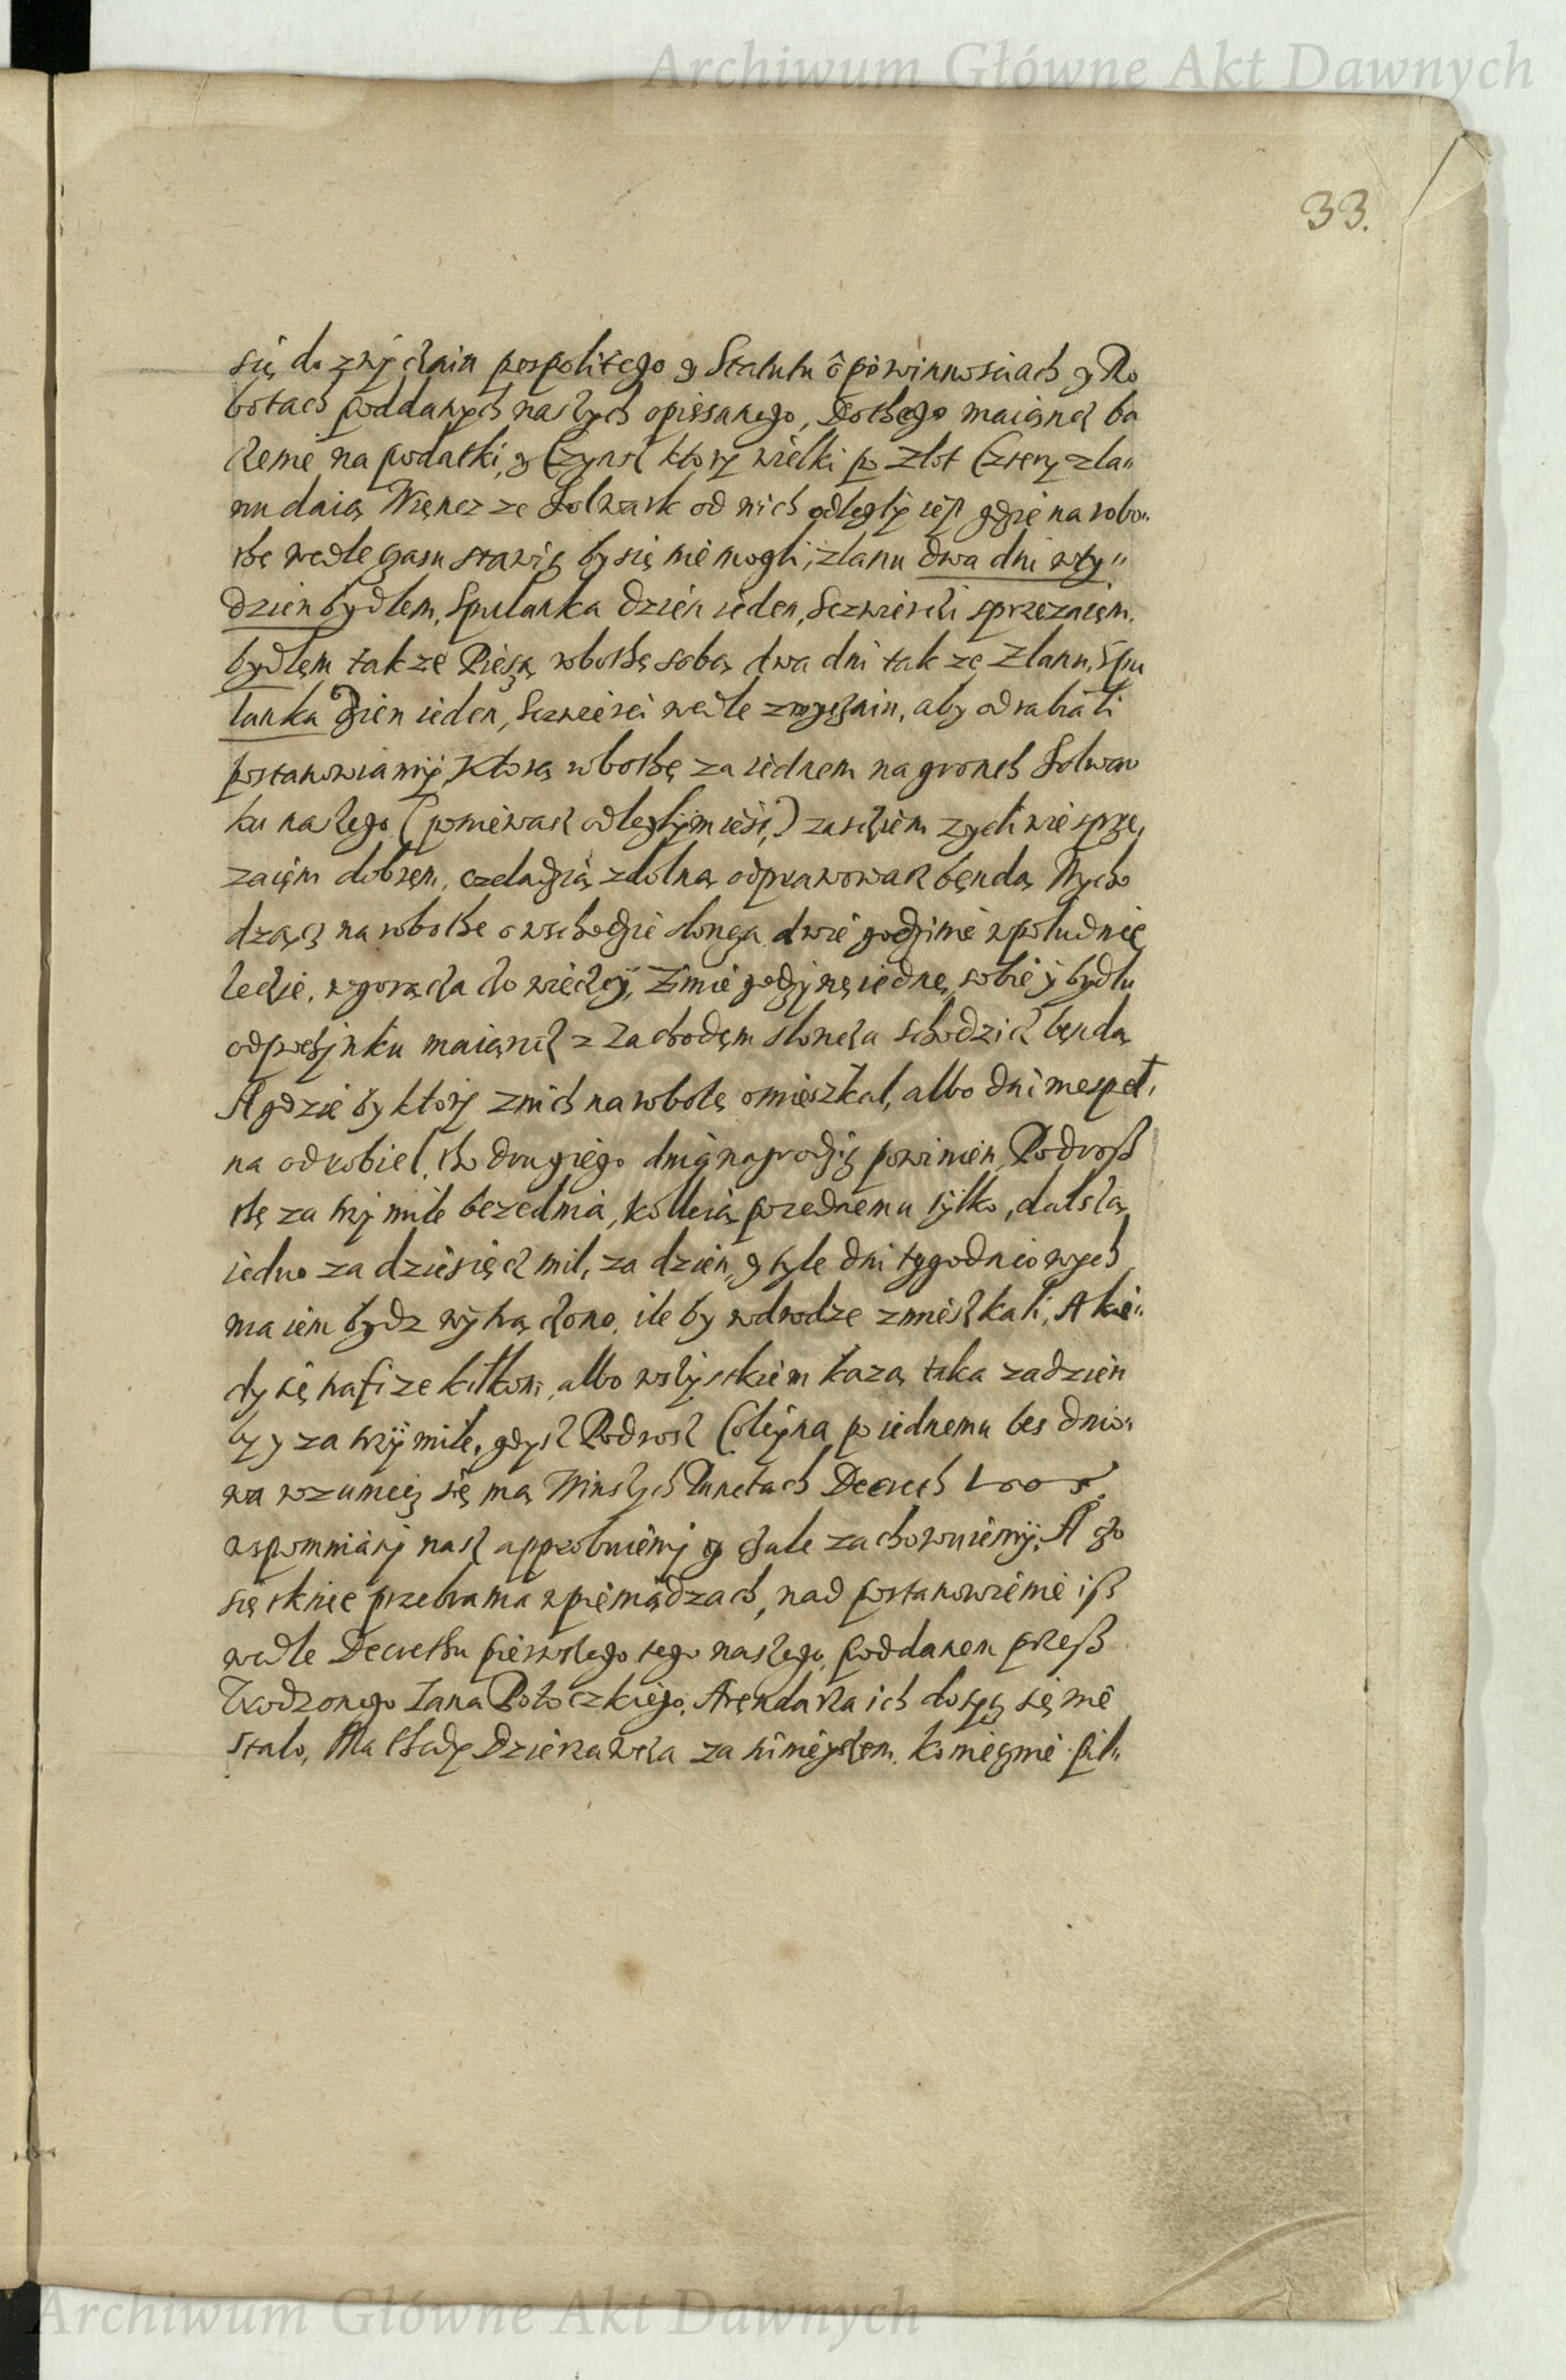 Archiwum Główne Akt Dawnych
33.
się do zwyczaiu pospolitego y Statutu o powinnosciach y Ro
botach poddanych naszych opissanego, Do thego maiąncz ba
czenie na podatki, y Czynsz ktory wielki po zlot Cztery z la„
nu daią Więncz ze Folwark od nich odległy iest gdzie na robo„
thę wedle czasu stawić by się nie mogli, z lanu dwa dni w ty„
dzien bydlem, s pul lanka dzien ieden, s czwierci sprzezaiem
bydlęm takze Pieszą robothę sobą dwa dni takze z lanu, s pu
lanka dzien ieden, s czwierci wedle zwyczaiu, aby odrabiali
postanowiamy, Ktorą robothę za iednem na gronth Folwar
ku naszego (poniewasz odległym iest,) zasciem zyczliwie sprzę,
zaięm dobręm, czeladzią zdolną odprawowacz bęndą Wycho
dzącz na robothe o wschodzie slonca dwie godzinie w poludnie
lecie, w gorącza do wieczey, Zimie godzynę iednę, sobie y bydlu
odpoczynku maiąncz z Zachodęm sloncza schodzicz bęndą
A gdzie by ktory z nich na robotę omieszkal, albo dni niespel,
na odrobiel, tho drugiego dnia nagrodzić powinien, Podrosz
thę za trzy mile beze dnia, kolleią po iednemu tylko, dalszą
iedno za dziesięcz mil, za dzien, y tyle dni tygodniowych
ma iem bydz wytrączono, ile by w drodze zmieszkali, A kie„
dy się trafi ze kilkom, albo wszystkiem kazą, taka za dzien
by y za trzy mile, gdysz Podrosz Coleyna po iednemu bes dnio„
wa rozumieć się ma, W inszych Punctach Decreth
wspomniany nasz approbuiemy y czale zachowuiemy, A czo
się tknie przebrania w pieniądzach, nad postanowienie isz
wedle Decrethu pierwszego tego naszego, poddanem przesz
Urodzonego Iana Potoczkiego, Aręndarza ich dosyć się nie
stalo, Ma thedy Dzierzawcza za koniecznie pil„
Archiwum Główne Akt Dawnych